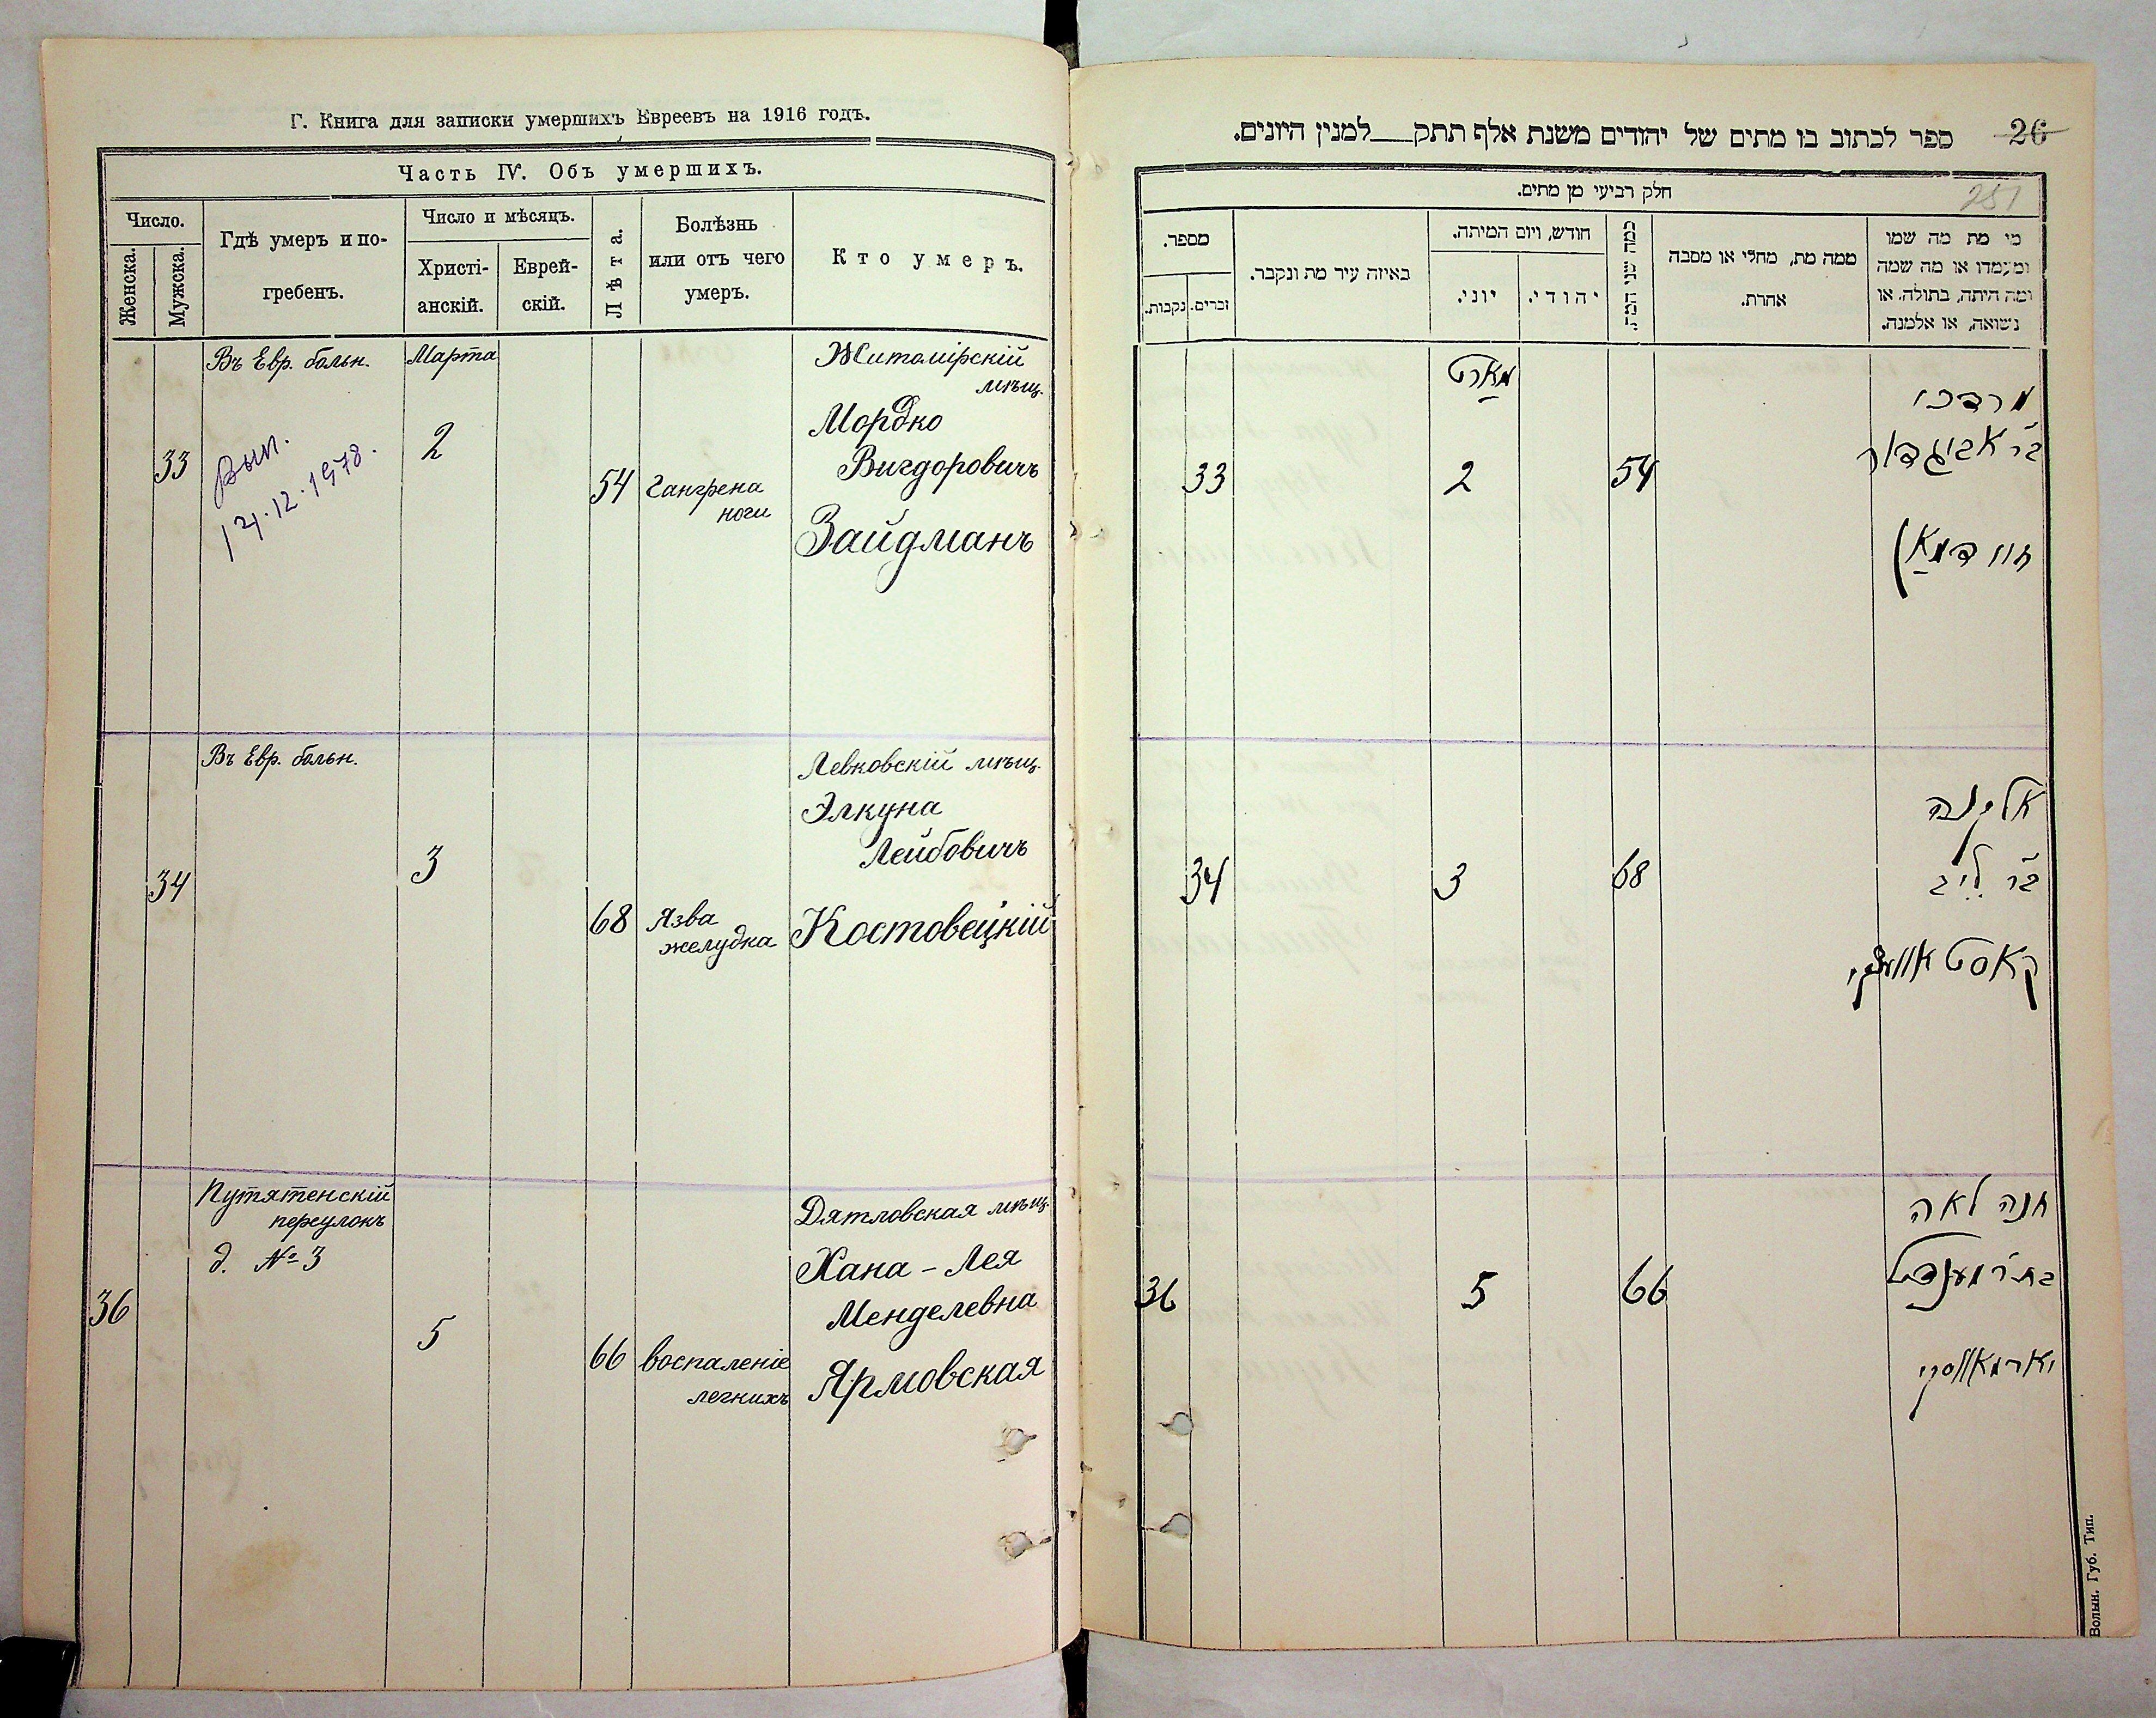 Г. Книга для записки умершихъ Евреевъ на 1916 годъ.
Часть IV. Объ умершихъ.
Число.
Женска.
Мужска.
Гдѣ умеръ и по-
гребенъ.
Число и мѣсяцъ.
Христі-
анскій.
Еврей-
скій.
Лѣта.
Болѣзнь
или отъ чего
умеръ.
Кто умеръ.
Въ Евр. больн.
Марта
Житомірскій
мѣщ.
Мордко
33
2
Вигдоровичъ
Вып.
54
Гангрена
ноги
12.1978.
Зайдманъ
Въ Евр. больн.
Левковскій мѣщ.
Элкуна
Лейбовичъ
34
3
68
Язва
желудка
Костовецкій
Путятенскій
переулокъ
д. № 3
Дятловская мѣщ.
Хана-Лея
36
Менделевна
5
66
воспаленіе
легкихъ
Ярмовская
26
ספר לכתוב בו מתים של יהודים משנת אלף תתק למנין היונים.
251
חלק רביעי מן מתים.
מי מת מה שמו
ומעמדו או מה שמה
ומה היתה, בתולה, או
נשואה, או אלמנה.
ממה מת, מחלי או מסבה
אחרת.
כמה שני המת.
חודש, ויום המיתה.
יהודי.
יוני.
באיזה עיר מת ונקבר.
מספר.
זכרים.
נקבות.
מארט
מרדכי
בר אביגדור
54
2
33
זיידמאן
אלקנה
בר לייב
68
3
34
קאסטאוועצקי
חנה לאה
בת ר מענדיל
66
5
36
יארמאווסקי
Волын. Губ. Тип.